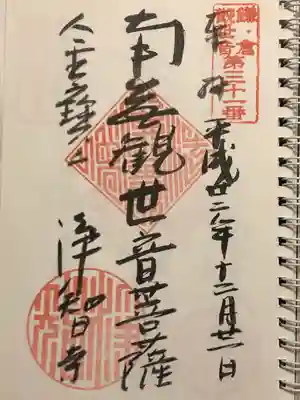 鎌・倉
観世音第三十一番
奉拝 平成廿二年十二月廿一日
南無観世音菩薩
金寶山 浄智寺